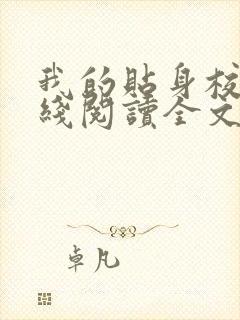 我的貼身校
綫閱讀全文
卓凡